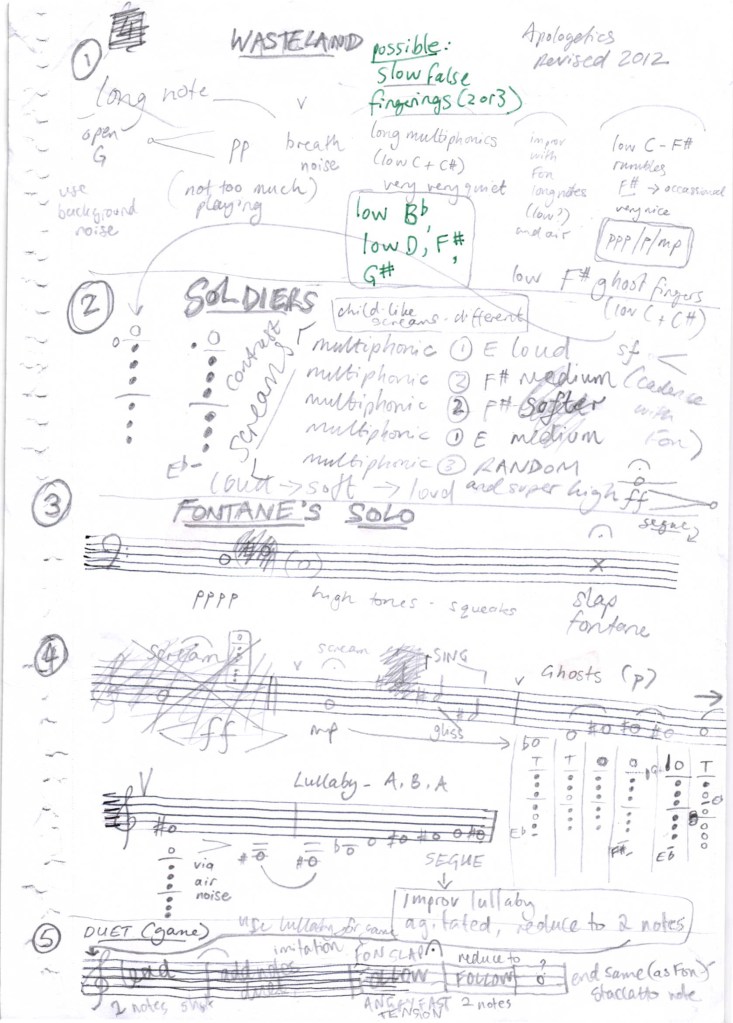 4
WASTELAND
possible:
slow false
fingerings (2 or 3)
Apologetics
Revised 2012
1
long note
open
G
pp
v
breath
noise
long multiphonics
(low C + C#)
very very quiet
improv
with
Fon
long notes
(low?)
and air
low C - F#
rumbles
F# → occasional
very nice
ppp/p/mp
use
background
noise
(not too much)
playing
low Bb,
low D, F#,
G#
low F# ghost fingers
(low C + C#)
2
SOLDIERS
child-like
screams - different
contrast
Screams
multiphonic 1 E loud sf
multiphonic 2 F# medium (cadence
multiphonic 2 F# softer with
multiphonic 1 E medium Fon)
multiphonic 3 RANDOM
Eb
loud → soft → loud and super high ff
segue
3
FONTANE'S SOLO
pppp
high tones - squeaks
slap
fontane
4
scream
v
scream
SING
v
Ghosts (p)
ff
mp
gliss
T T T
Eb
F#
Eb
Lullaby - A, B, A
via
air
noise
SEGUE
improv lullaby
agitated, reduce to 2 notes
5
DUET (game)
use lullaby for same
imitation
FON SLAP
reduce to
?
lead
add notes
duet
FOLLOW
FOLLOW
end same (as Fon)
staccatto note
2 notes
ANGRY FAST
TENSION
2 notes